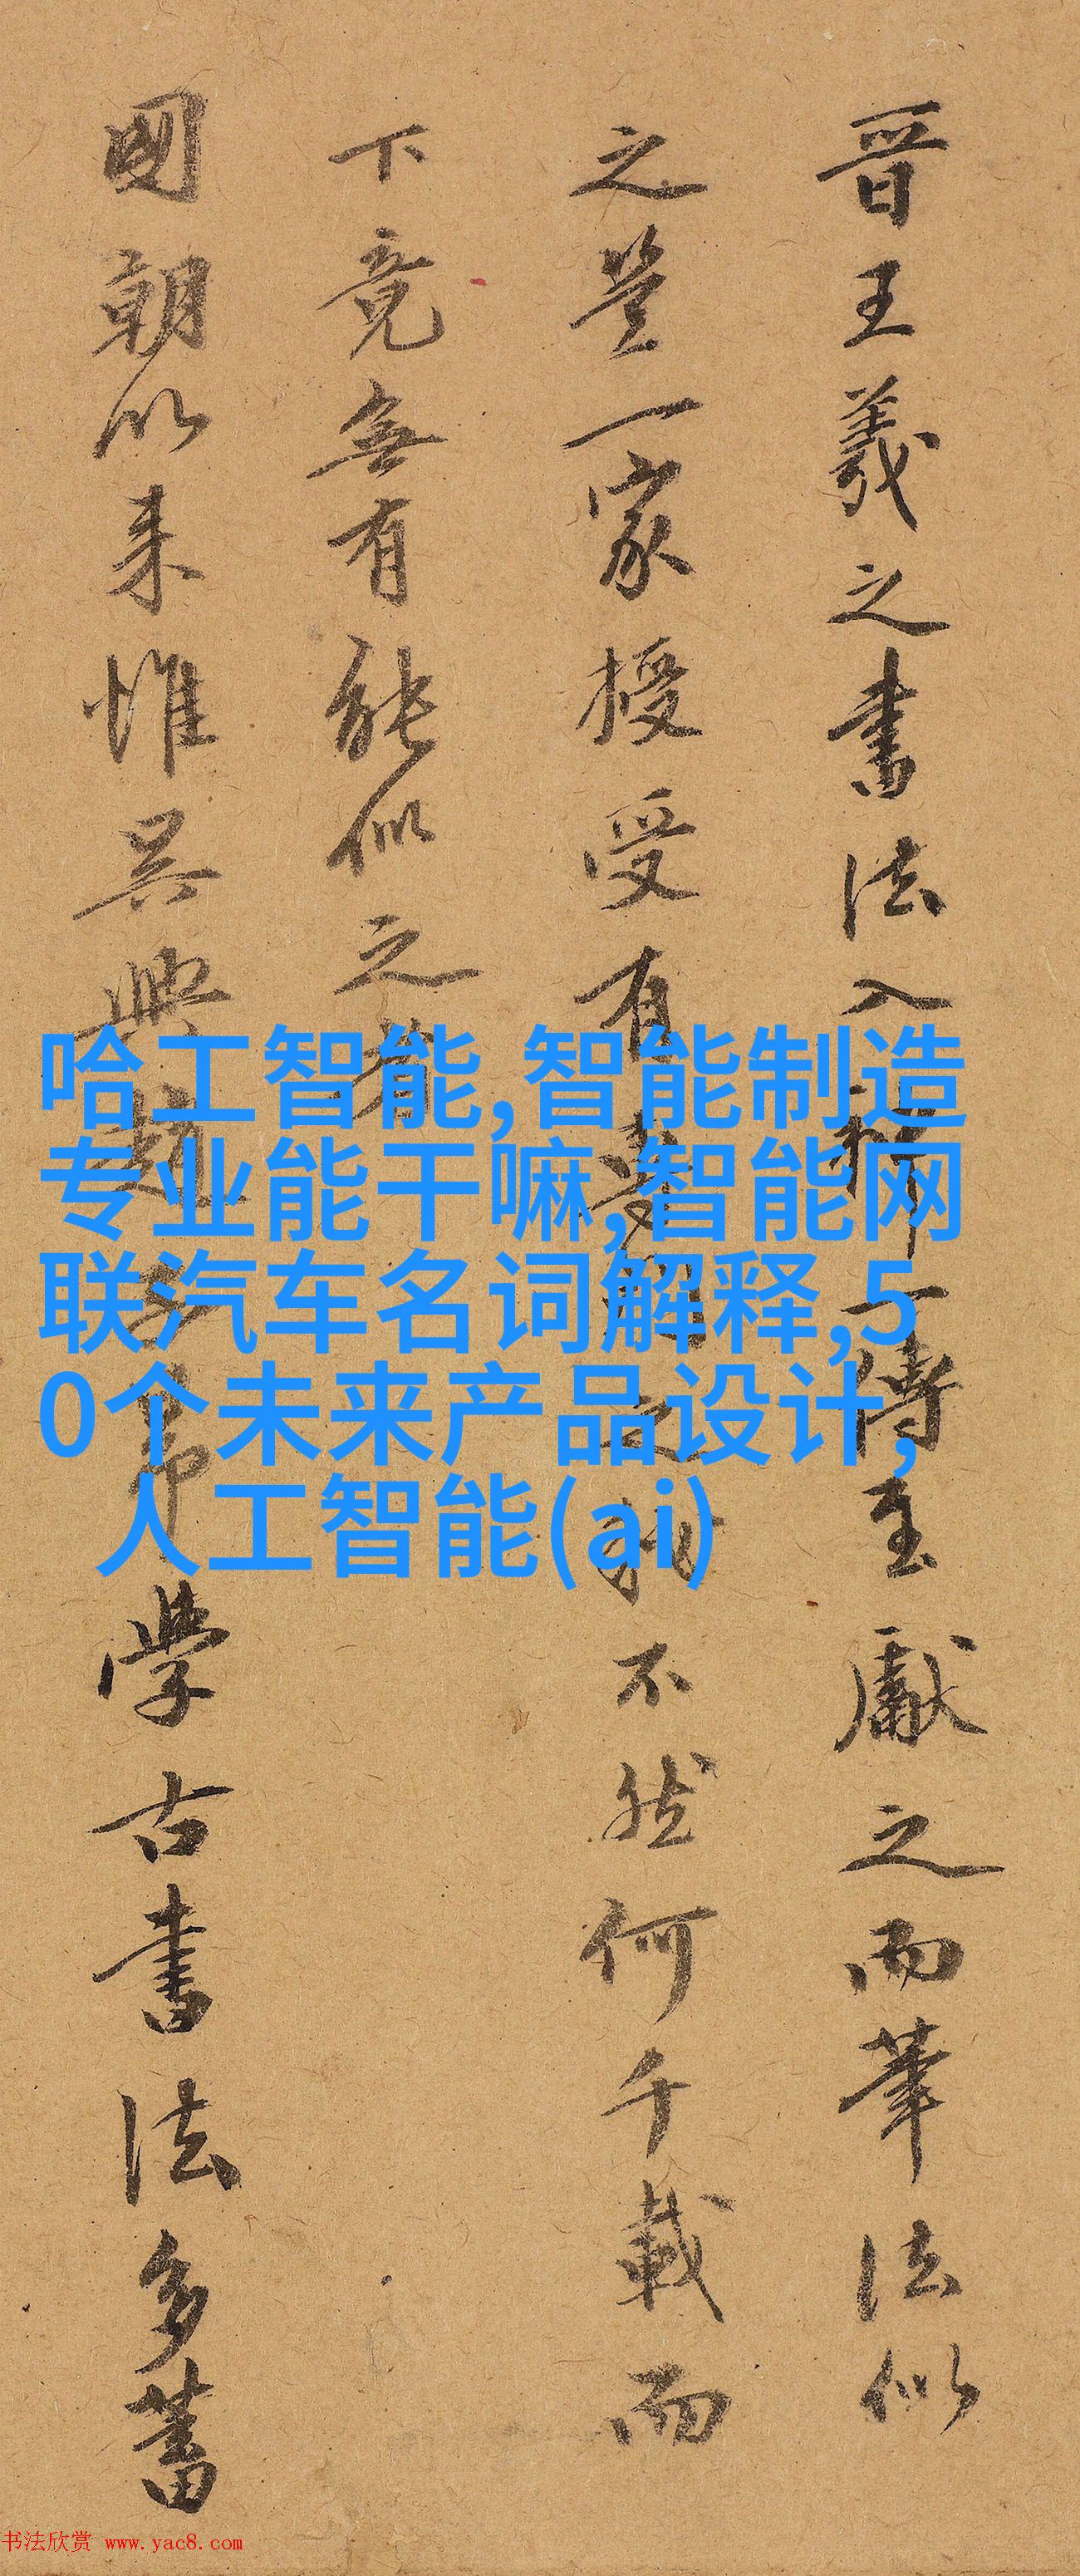 晋王羲之書法入一傳至獻之而筆法似
之豈一家授受有之不然何千載而
下竟無有能似之者
國朝以来惟吴興趙學古書法多蓄
哈工智能,智能制造
专业能干嘛,智能网
联汽车名词解释,5
0个未来产品设计,
人工智能(ai)
书法欣赏 www.yac8.com